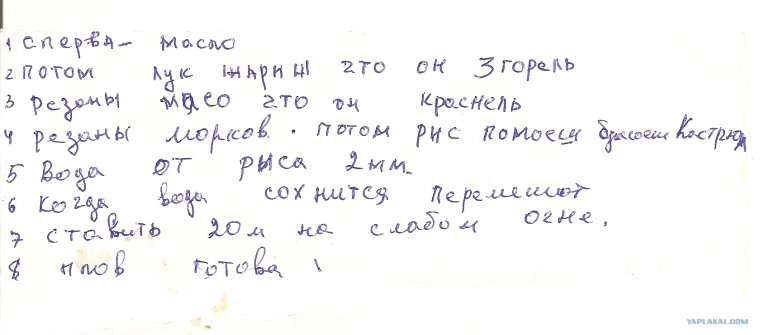 1 сперва - масло
2 потом лук жариш что он згорель
3 резаны мясо что он краснель
4 резаны морков. потом рис помоеш бросеш Кастрюл
5 Вода от рыса 2мм.
6 Когда вода сохнится перемешот
7 ставить 20м на слабом огне.
8 плов готова !
YAPLAKAL.COM